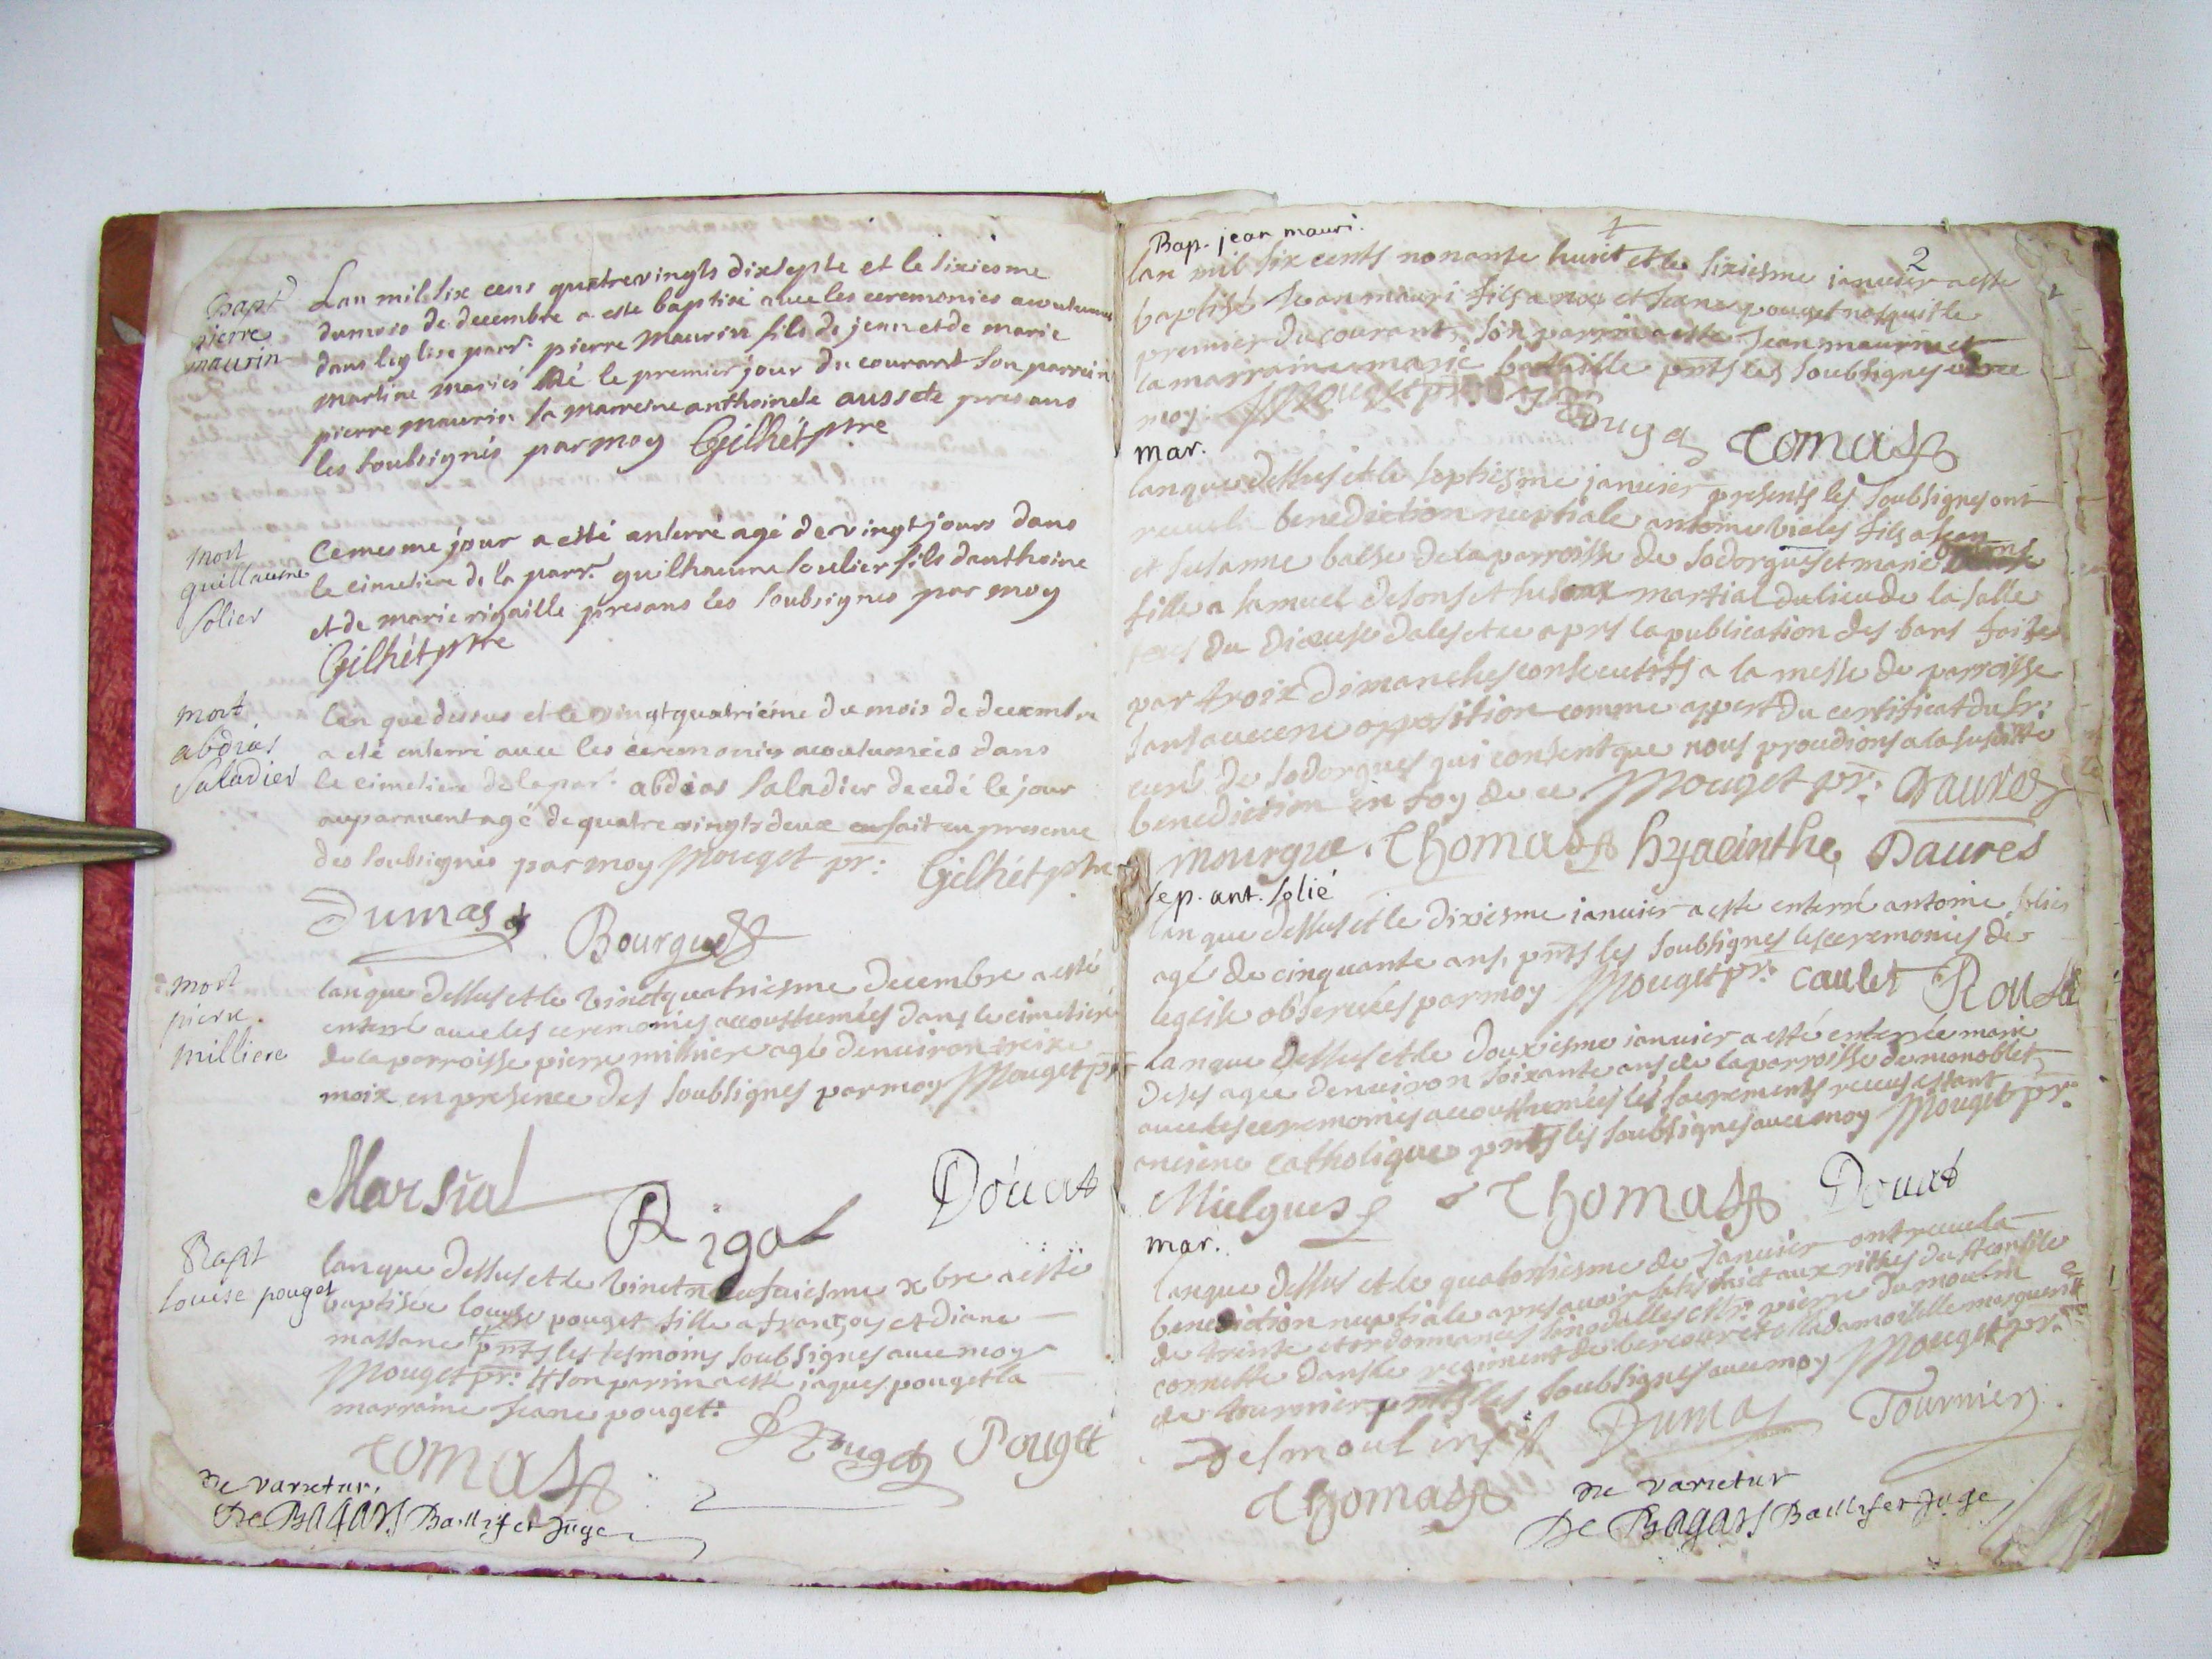 Bapt
pierre
maurin
Lan mil six cens quatrevingts dixsepte et le sixiesme
du mois de decembre a este baptisé avec les ceremonies acoutumées
dans leglise parr. pierre Maurin fils de jean et de marie
martine mariés né le premier jour du courant son parrein
pierre maurin sa marreine anthoinete aussete presans
les soubsignés par moy Gilhét ptre
mort
guillaume
solier
Ce mesme jour a esté anterré agé de vingt jours dans
le cimetiere de la parr. guilhaume soulier fils danthoine
et de marie rigaille presans les soubsignes par moy
Gilhét ptre
mort
abdias
Saladier
lan que dessus et le vingt quatriéme du mois de decembre
a eté enterré avec les ceremonies acoutumées dans
le cimetiere de la par. abdias Saladier decedé le jour
auparavent agé de quatre vingts deux en presence
des soubsignés par moy Mouget pr. Gilhét ptre
Dumas
Bourgues
mort
pierre
milliere
lan que dessus et le vinct quatriesme decembre a esté
enterré avec les ceremonies accoustumées dans le cimetiere
de la parroisse pierre milhiere agé denviron treize
moix en presence des soubsignes par moy Mouget pr
Marsial
Rigal
Douat
Bapt
Louise pouget
lan que dessus et le vinct xbre a esté
baptisée louise pouget fille a françoys et diane
massane pnts les tesmoins soubsignes avec moy
Mouget pr. son parrin a esté jaques pouget la
marraine jeane pouget.
Tomas
Pouget
Pouget
ne varietur
De Bagars Baillif et Juge
1
2
Bap. jean mauri.
lan mil six cents nonante huict et le sixiesme janvier a este
baptisé Jean mauri fils a et Jeane pouget nasquit le
premier du courant, son parrin a este Jean maurin et
la marraine marie bataille pnts les soubsignes avec
moy Mouget pr
Tomas
mar.
lan que dessus et le septiesme janvier presents les soubsignes ont
receu la benediction nuptiale antoine viele fils a jean
et susanne basse de la parroisse de sodorgues et marie
fille a samuel desons et susane martial du lieu de la salle
du diocese dales et ce apres la publication des bans faite
par troix dimanches consecutifs a la messe de parroisse
sans aucune opposition comme appert du certificat du sr.
curé de sodorgues qui consent que nous procedions a la susditte
benediction en foy de ce Mouget pr. Daures
mourgue. Thomas hyacinthe Daures
Sep. ant. Solié
lan que dessus et le dixiesme janvier a este enterré antoine solier
agé de cinquante ans, pnts les soubsignes les ceremonies de
leglise observées par moy Mouget pr. caulet Rous
lan que dessus et le douxiesme janvier a esté enterrée marie
agee denviron soixante ans de la parroisse de monoblet
avec les ceremonies accoustumées les sacrements receus estant
anciene catholique pnts les soubsignes avec moy Mouget pr.
Mielgues Thomas Douat
mar.
lan que dessus et le quatorsiesme de Janvier ont receu la
benediction nuptiale apres avoir satisfaict aux rithes du st consile
de trente et ordonnances sinodalles pierre dumoulin
cornette dans le regiment de et damoiselle marguerite
de tournier pnts les soubsignes avec moy Mouget pr.
Desmoulins Dumas Tournier
Thomas
ne varietur
De Bagars Baillif et Juge